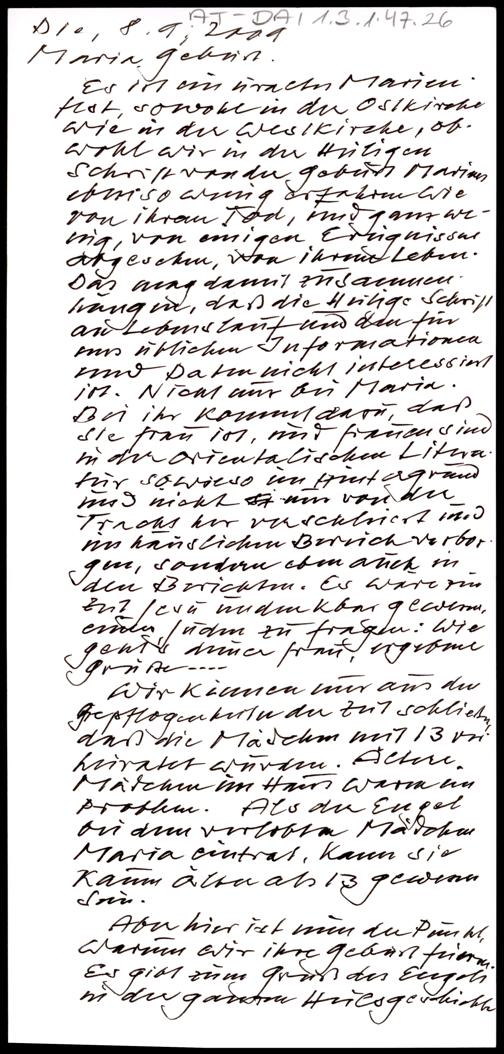 AT-DAI 1.3.1.47.26
Die, 8.9.2009
Mariä Geburt.
Es ist ein uraltes Marien-
fest, sowohl in der Ostkirche
wie in der Westkirche, ob-
wohl wir in der Heiligen
Schrift von der Geburt Mariens
ebenso wenig erfahren wie
von ihrem Tod, und ganz we-
nig, von einigen Ereignissen
abgesehen, von ihrem Leben.
Das mag damit zusammen-
hängen, daß die Heilige Schrift
an Lebenslauf und den für
uns üblichen Informationen
und Daten nicht interessiert
ist. Nicht nur bei Maria.
Bei ihr kommt dazu, daß
sie Frau ist, und Frauen sind
in der orientalischen Litera-
tur sowieso im Hintergrund
und nicht nur von der
Tracht her verschleiert und
im häuslichen Bereich verbor-
gen, sondern eben auch in
den Berichten. Es wäre zur
Zeit Jesu undenkbar gewesen,
einen Juden zu fragen: Wie
geht's deiner Frau, ergebene
Grüße ----
Wir können nur aus den
Gepflogenheiten der Zeit schließen,
daß die Mädchen mit 13 ver-
heiratet wurden. Ältere
Mädchen im Haus waren ein
Problem. Als der Engel
bei dem verlobten Mädchen
Maria eintrat, kann sie
kaum älter als 13 gewesen
sein.
Aber hier ist nun der Punkt,
warum wir ihre Geburt feiern.
Es gibt zum Gruß des Engels
in der ganzen Heilsgeschichte